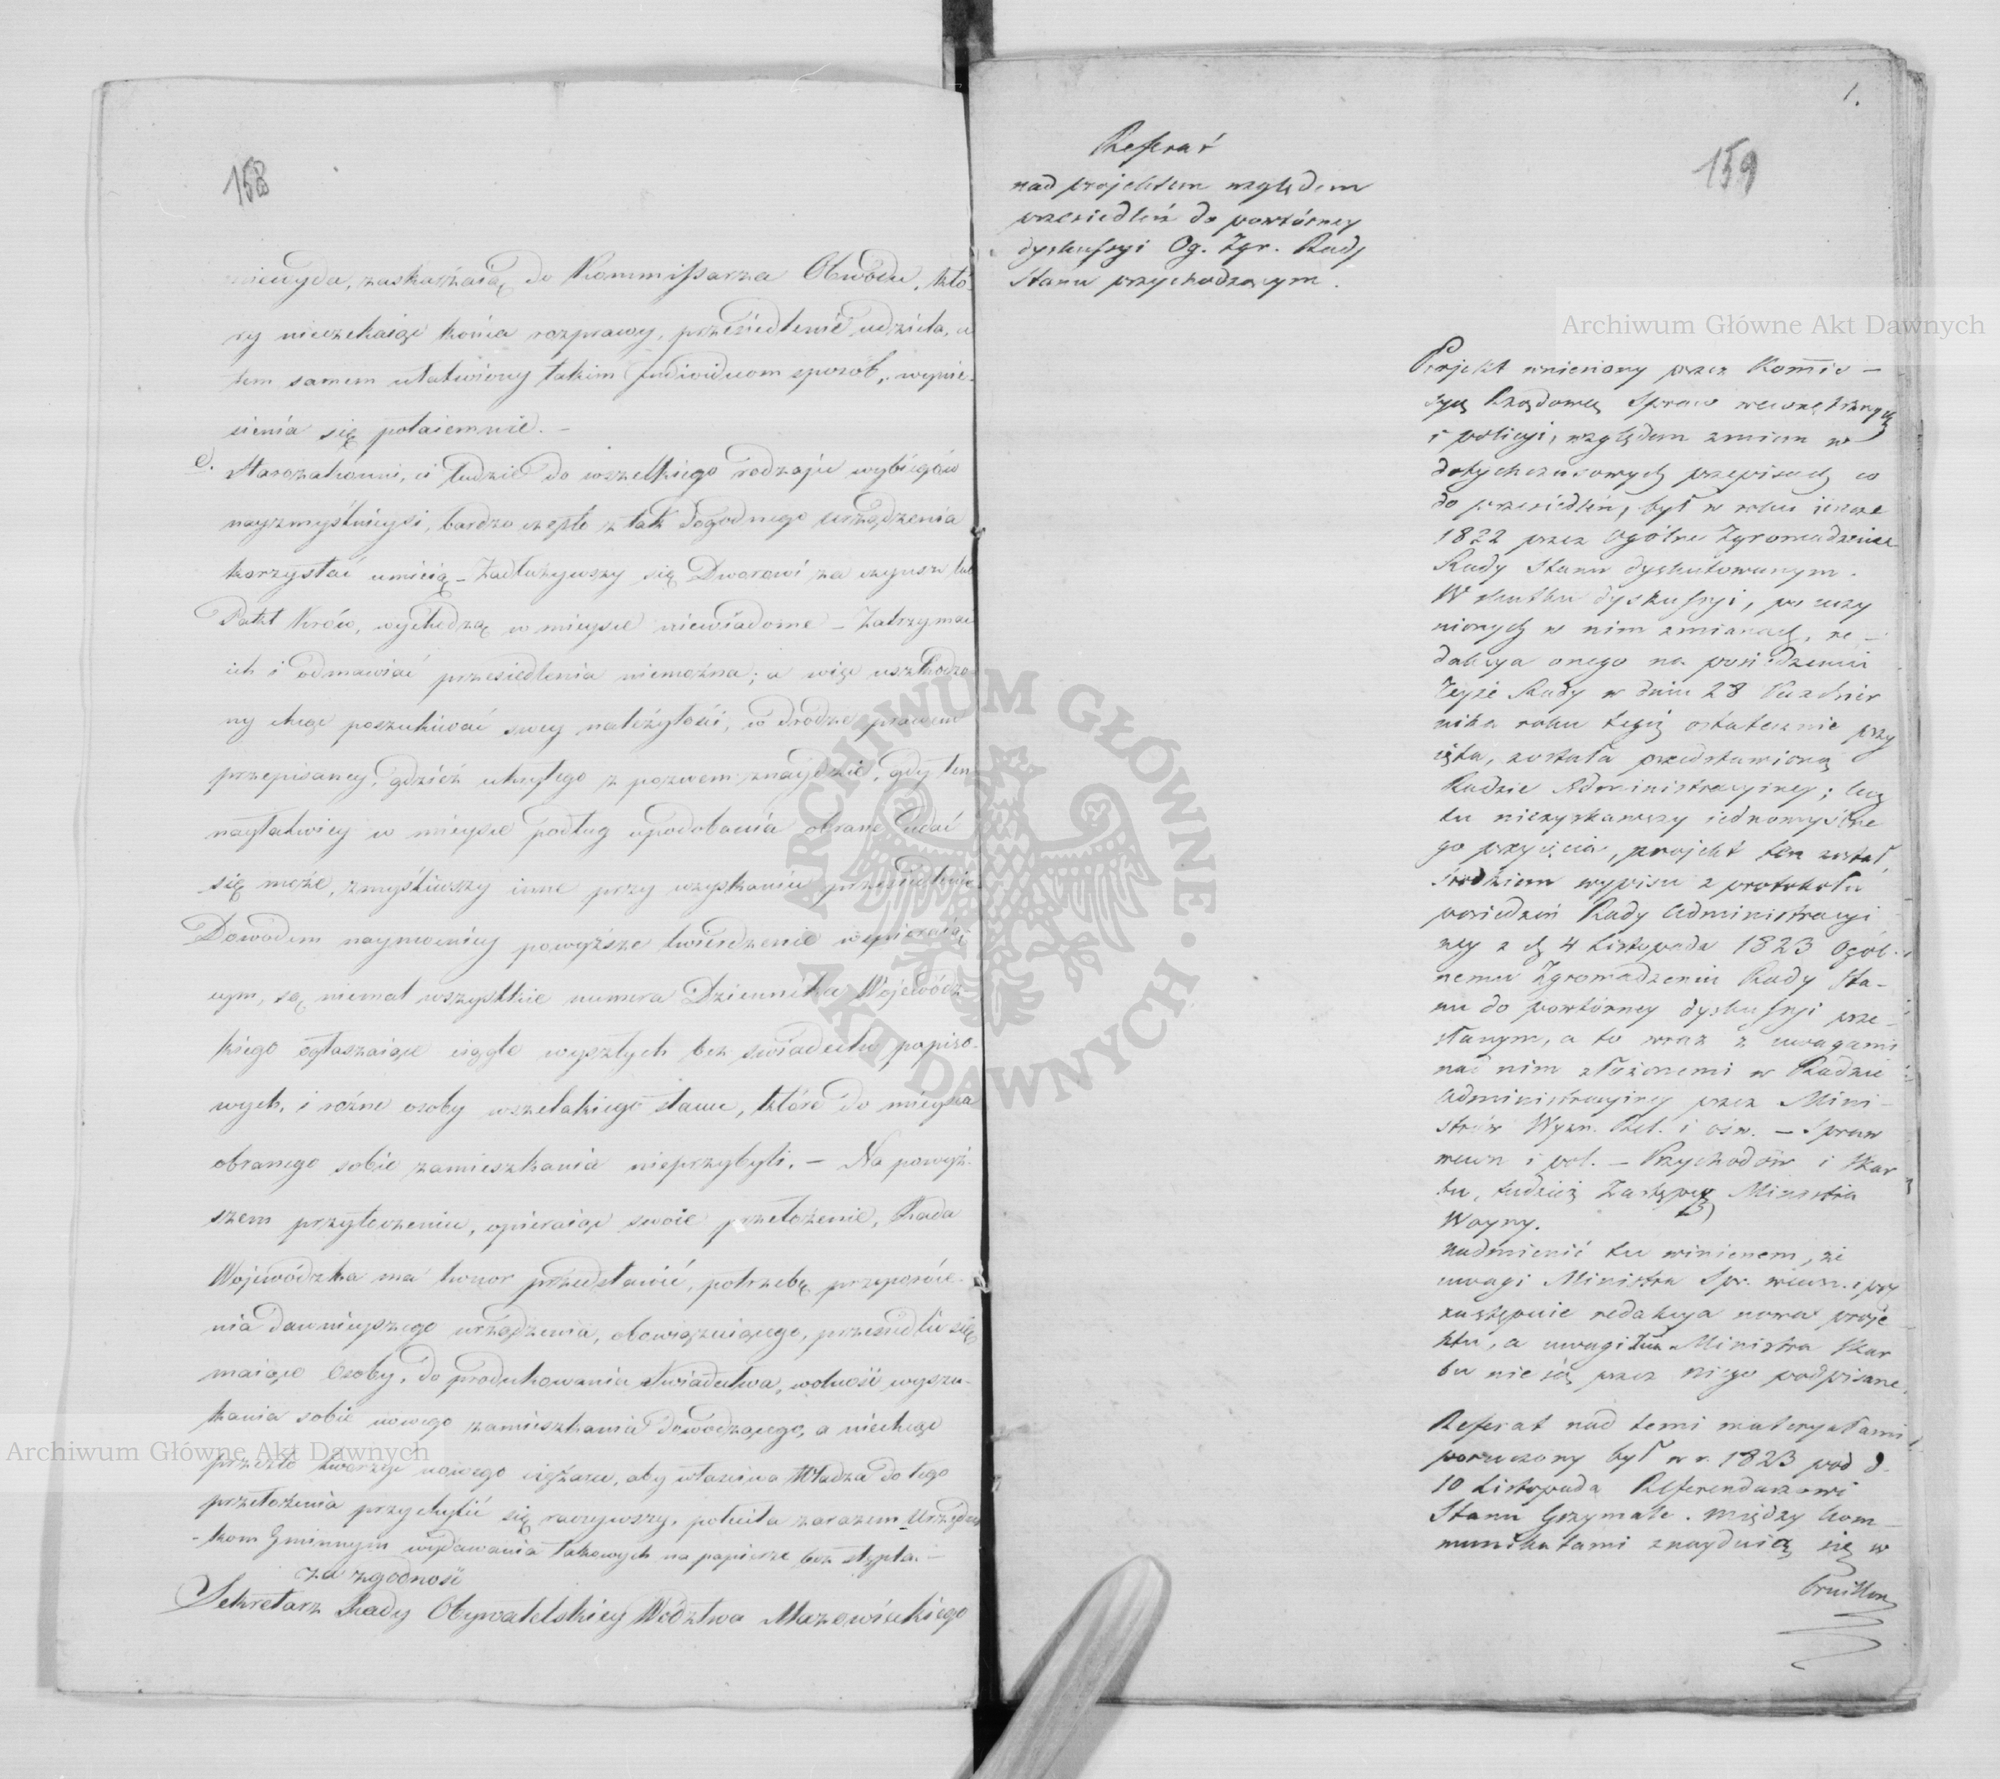 158
niewyda, zaskarżaią do Kommissarza Obwodu, któ-
ry nieczekaiąc końca rozprawy, przesiedlenie udziela, a
tem samem ułatwiony takim Indiwiduom sposób, wynie-
sienia się potaiemnie. –
e. Starozakonni, ci ludzie do wszelkiego rodzaju wybiegów
nayzmyślnieysi, bardzo często z tak dogodnego urządzenia
korzystać umieią – Zadłużywszy się Dworowi za czynsz lub
Pakt Krów, wychodzą w mieysce niewiadome – Zatrzymać
ich i odmawiać przesiedlenia niemożna; a więc uszkodzo-
ny chcąc poszukiwać swey należytości, w drodze prawem
przepisaney, gdzież ukrytego z pozwem znaydzie, gdy ten
nayłatwiey w mieysce podług upodobania obrane udać
się może, zmyśliwszy inne przy uzyskaniu przesiedlenia
Dowodem naymocniey powyższe twierdzenie wspieraią-
cym, są niemal wszystkie numera Dziennika Wojewódz-
kiego ogłaszaiące ciągle wyszłych bez świadectw popiso-
wych, i różne osoby wszelakiego stanu, które do mieysca
obranego sobie zamieszkania nieprzybyli. – Na powyż-
szem przytoczeniu, opieraiąc swoie przełożenie, Rada
Wojewódzka ma honor przedstawić, potrzebę
nia dawnieyszego urządzenia, obowiązuiącego, przesiedlić się
maiące Osoby, do produkowania świadectwa, wolność wyszu-
kania sobie nowego zamieszkania dowodzącego, a niechcąc
przezto tworzyć nowego ciężaru, aby właściwa Władza do tego
przełożenia przychylić się raczywszy, poleciła zarazem Urzędni-
kom Gminnym wydawania takowych na papierze bez stępla. –
za zgodność
Sekretarz Rady Obywatelskiey Wództwa Mazowieckiego
1.
159
Referat
nad projektem względem
przesiedleń do powtórney
dyskussyi Og. Zgr. Rady
Stanu przychodzącym.
Projekt wniesiony przez Kommis-
syą Rządową Spraw wewnętrznych
i policyi, względem zmian w
dotychczasowych przepisach co
do przesiedleń, był w roku ieszcze
1822 przez Ogólne Zgromadzenie
Rady Stanu dyskutowanym.
W skutku dyskussyi, po uczy
nionych w nim zmianach, re-
dakcya onego na posiedzeniu
teyże Rady w dniu 28 Paździer
nika roku tegoż ostatecznie przy
ięta, została przedstawioną
Radzie Administracyiney; lecz
tu niezyskawszy iednomyślne
go przyięcia, projekt ten został
środkiem wypisu z protokołu
posiedzeń Rady Administracyi
ney z d. 4 Listopada 1823 Ogól-
nemu Zgromadzeniu Rady Sta-
nu do powtórney dyskussyi prze-
słanym, a to wraz z uwagami
nad nim złożonemi w Radzie
Administracyiney przez Mini-
strów Wyzn. Rel. i ośw. – Spraw
wewn i pol. – Przychodów i Skar
bu, tudzież Zastępcę Ministra
Woyny.
nadmienić tu winienem, że
uwagi Ministra Spr. wewn. i pol
zastępuie redakcya nowa proje
ktu, a uwagi Ministra Skar
bu nie są przez niego podpisane.
Referat nad temi materyałami
poruczony był w r. 1823 pod d.
10 Listopada Referendarzowi
Stanu Grzymale. między kom-
munikatami znayduią się w